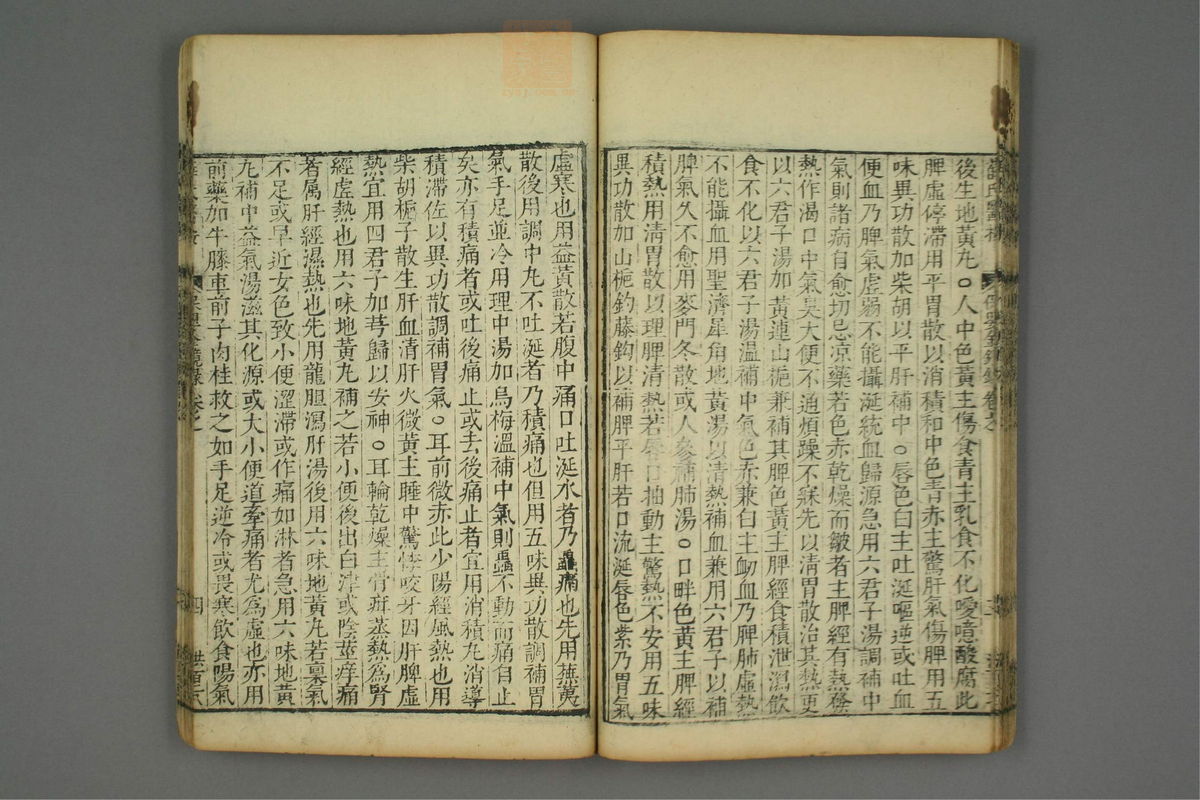 後生地黃丸○人中色黃主傷食青主乳食不化噯噫酸腐此
脾虛停滯用平胃散以消積和中色青赤主驚肝氣傷脾用五
味異功散加柴胡以平肝補中○唇色白主吐涎嘔逆或吐血
便血乃脾氣虛弱不能攝涎統血歸源急用六君子湯調補中
氣則諸病自愈切忌凉藥若色赤乾燥而皺者主脾經有熱
熱作渴口中氣臭大便不通煩躁不寐先以清胃散治其熱更
以六君子湯加黃連山梔兼補其脾色黃主脾經食積泄瀉飲
食不化以六君子湯溫補中氣色赤兼白主衂血乃脾肺虛熱
不能攝血用聖濟犀角地黃湯以清熱補血兼用六君子以補
脾氣久不愈用麥門冬散或人參補肺湯○口畔色黃主脾經
積熱用清胃散以理脾清熱若唇口抽動主驚熱不安用五味
異功散加山梔鈎藤鈎以補脾平肝若口流涎唇色紫乃胃氣
虛寒也用益黃散若腹中痛口吐涎水者乃蟲痛也先用蕪荑
散後用調中丸不吐涎者乃積痛也但用五味異功散調補胃
氣手足並冷用理中湯加烏梅溫補中氣則蟲不動而痛自止
矣亦有積痛者或吐後痛止或去後痛止者宜用消積丸消導
積滯佐以異功散調補胃氣○耳前微赤此少陽經風熱也用
柴胡梔子散生肝血清肝火微黃主睡中驚悸咬牙因肝脾虛
熱宜用四君子加芎歸以安神○耳輪乾燥主骨疳蒸熱爲腎
經虛熱也用六味地黃丸補之若小便後出白津或陰莖痒痛
者属肝經濕熱也先用龍胆瀉肝湯後用六味地黃丸若稟氣
不足或早近女色致小便澀滯或作痛如淋者急用六味地黃
丸補中益氣湯滋其化源或大小便道牽痛者尤爲虛也亦用
前藥加牛膝車前子肉桂救之如手足逆冷或畏寒飲食陽氣